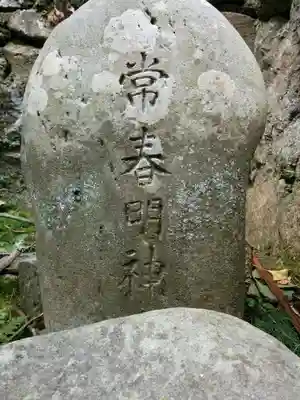 常春明神